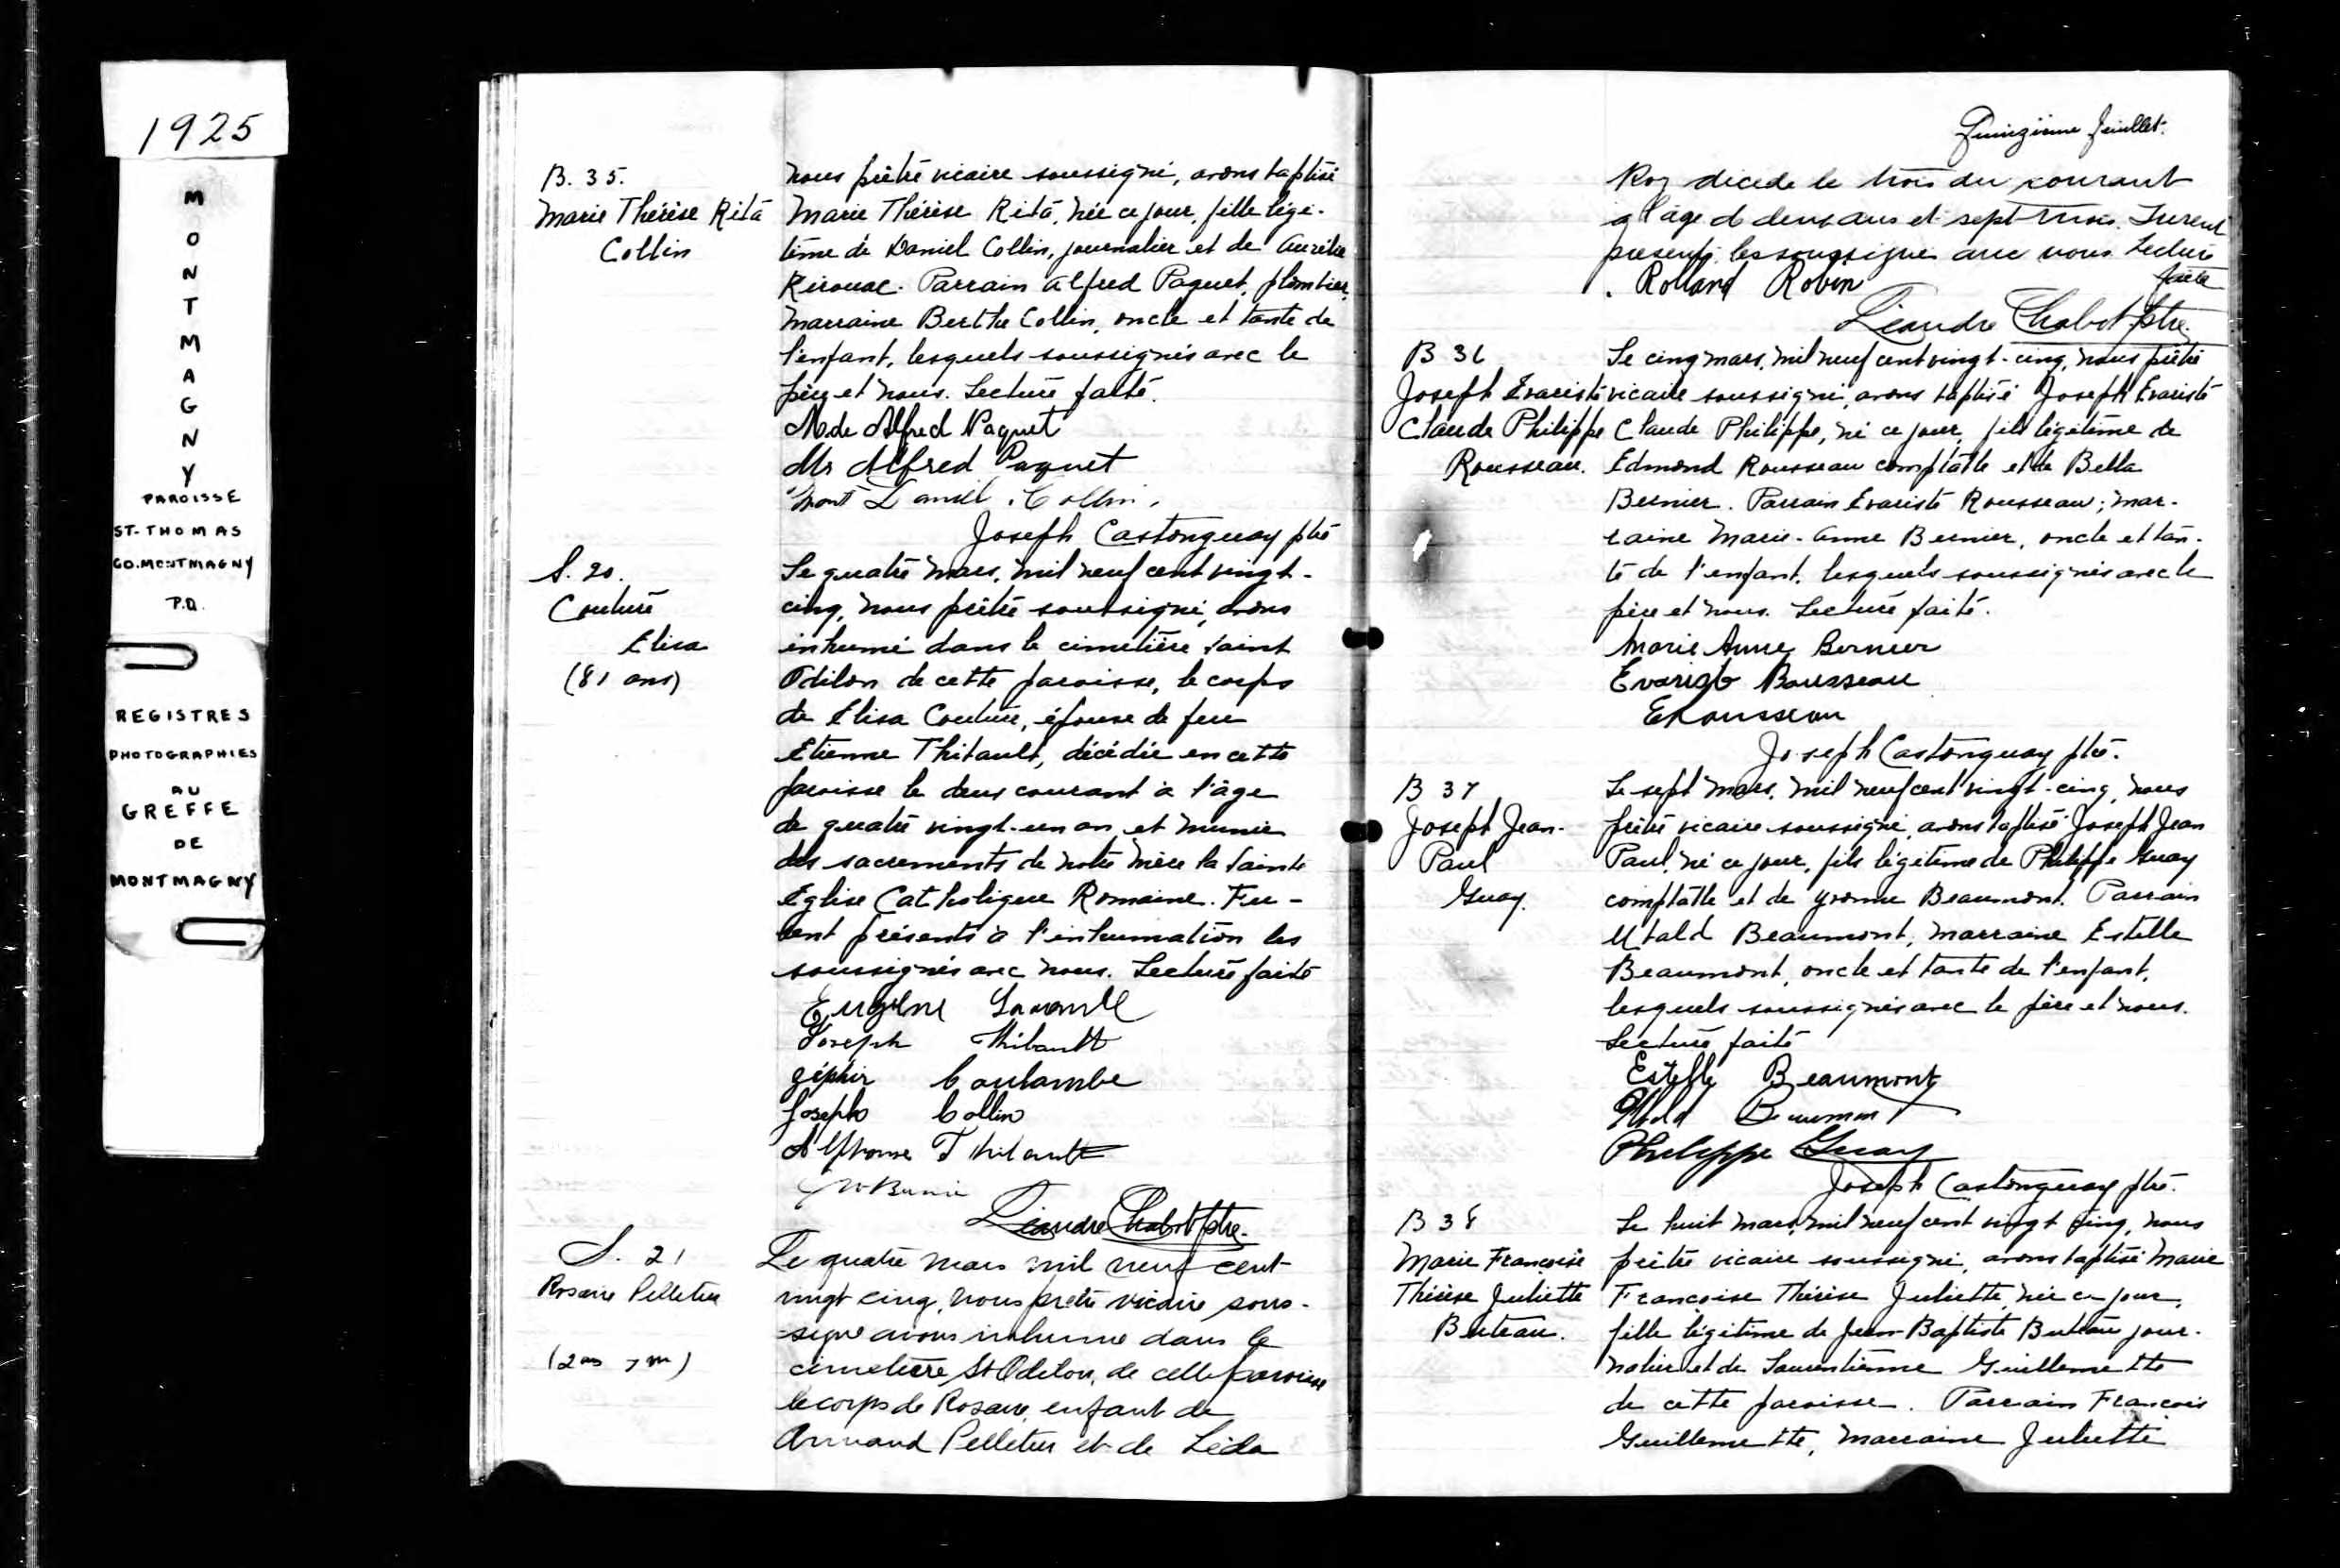 1925
M
O
N
T
M
A
G
N
Y
PAROISSE
ST-THOMAS
CO. MONTMAGNY
P.Q.
REGISTRES
PHOTOGRAPHIES
AU
GREFFE
DE
MONTMAGNY
B. 35.
Marie Thérèse Rita
Collin
nous prêtre vicaire soussigné, avons baptisé
Marie Thérèse Rita, née ce jour, fille légi-
time de Daniel Collin, journalier et de Aurélie
Kirouac. Parrain Alfred Paquet, plombier,
marraine Berthe Collin, oncle et tante de
l'enfant, lesquels soussignés avec le
père et nous. Lecture faite.
Mde Alfred Paquet
Mr Alfred Paquet
Daniel Collin.
Joseph Castonguay ptre
S. 20.
Couture
Elisa
(81 ans)
Le quatre mars, mil neuf cent vingt-
cinq, nous prêtre soussigné, avons
inhumé dans le cimetière saint
Odilon de cette paroisse, le corps
de Elisa Couture, épouse de feu
Etienne Thibault, décédée en cette
paroisse le deux courant à l'âge
de quatre vingt-un an, et munie
des sacrements de notre mère la sainte
Eglise Catholique Romaine. Fu-
rent présents à l'inhumation les
soussignés avec nous. Lecture faite
Eugène
Joseph Thibault
Zéphir Coulombe
Joseph Collin
Alphonse Thibault
Léandre Chabot ptre.
S. 21
Rosaire Pelletier
(2 ans 7 m)
Le quatre mars mil neuf cent
vingt cinq, nous prêtre vicaire sous-
signé avons inhumé dans le
cimetière St Odilon, de cette paroisse
le corps de Rosaire, enfant de
Armand Pelletier et de Léda
Quinzième feuillet.
Roy décédé le trois du courant
à l'âge de deux ans et sept mois. Furent
présents, les soussignés avec nous. Lecture
faite
Rolland Robin
Léandre Chabot ptre.
B 36
Joseph Evariste
Claude Philippe
Rousseau.
Le cinq mars, mil neuf cent vingt-cinq, nous prêtre
vicaire soussigné, avons baptisé Joseph Evariste
Claude Philippe, né ce jour, fils légitime de
Edmond Rousseau comptable et de Bella
Bernier. Parrain Evariste Rousseau; mar-
raine Marie-Anne Bernier, oncle et tan-
te de l'enfant, lesquels soussignés avec le
père et nous. Lecture faite.
Marie Anne Bernier
Evariste Rousseau
E Rousseau
Joseph Castonguay ptre.
B 37
Joseph Jean-
Paul
Guay.
Le sept mars, mil neuf cent vingt-cinq, nous
prêtre vicaire soussigné, avons baptisé Joseph Jean
Paul, né ce jour, fils légitime de Philippe Guay
comptable et de Yvonne Beaumont. Parrain
Utald Beaumont, marraine Estelle
Beaumont, oncle et tante de l'enfant,
lesquels soussignés avec le père et nous.
Lecture faite
Estelle Beaumont
Beaumont
Philippe Guay
Joseph Castonguay ptre.
B 38
Marie Françoise
Thérèse Juliette
Buteau.
Le huit mars, mil neuf cent vingt cinq, nous
prêtre vicaire soussigné, avons baptisé Marie
Françoise Thérèse Juliette, née ce jour,
fille légitime de Jean-Baptiste Buteau jour-
nalier et de Laurentienne Guillemette
de cette paroisse. Parrain François
Guillemette, marraine Juliette